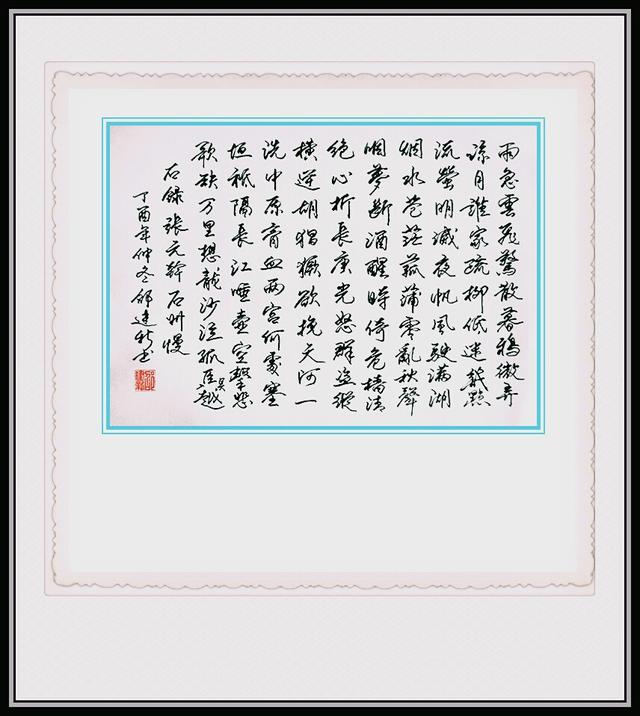 雨急雲飛驚散暮鴉微弄
涼月誰家疏柳低迷幾點
流螢明滅夜帆風駛满湖
烟水苍茫菰蒲零亂秋聲
咽夢斷酒醒時倚危檣清
绝心折長庚光怒群盗縱
横逆胡猖獗欲挽天河一
洗中原膏血两宫何處塞
垣祗隔長江唾壺空擊悲
歌缺万里想龍沙泣孤臣吴越
右錄張元幹石州慢
丁酉年仲冬邵建新书